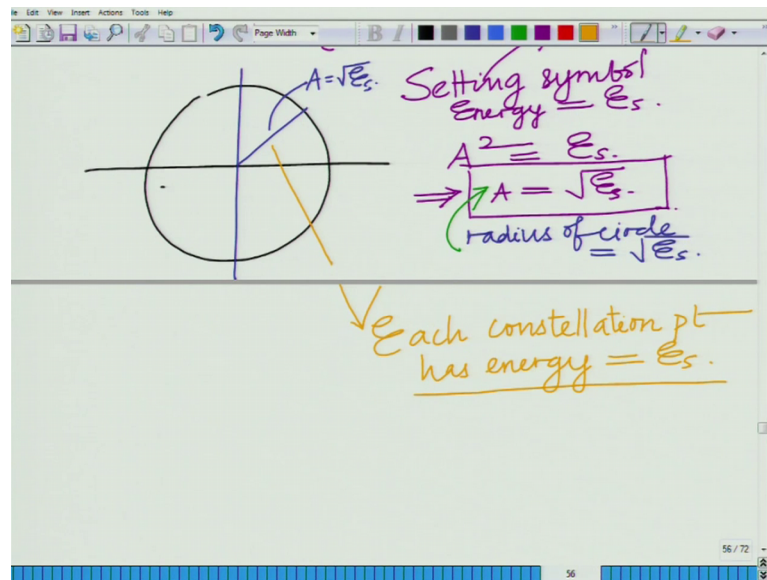 File Edit View Insert Actions Tools Help
Page Width
B I
A = √Es.
Setting symbol
Energy = Es.
A² = Es.
⇒ A = √Es.
radius of circle
= √Es.
Each constellation pt
has energy = Es.
56 / 72
56